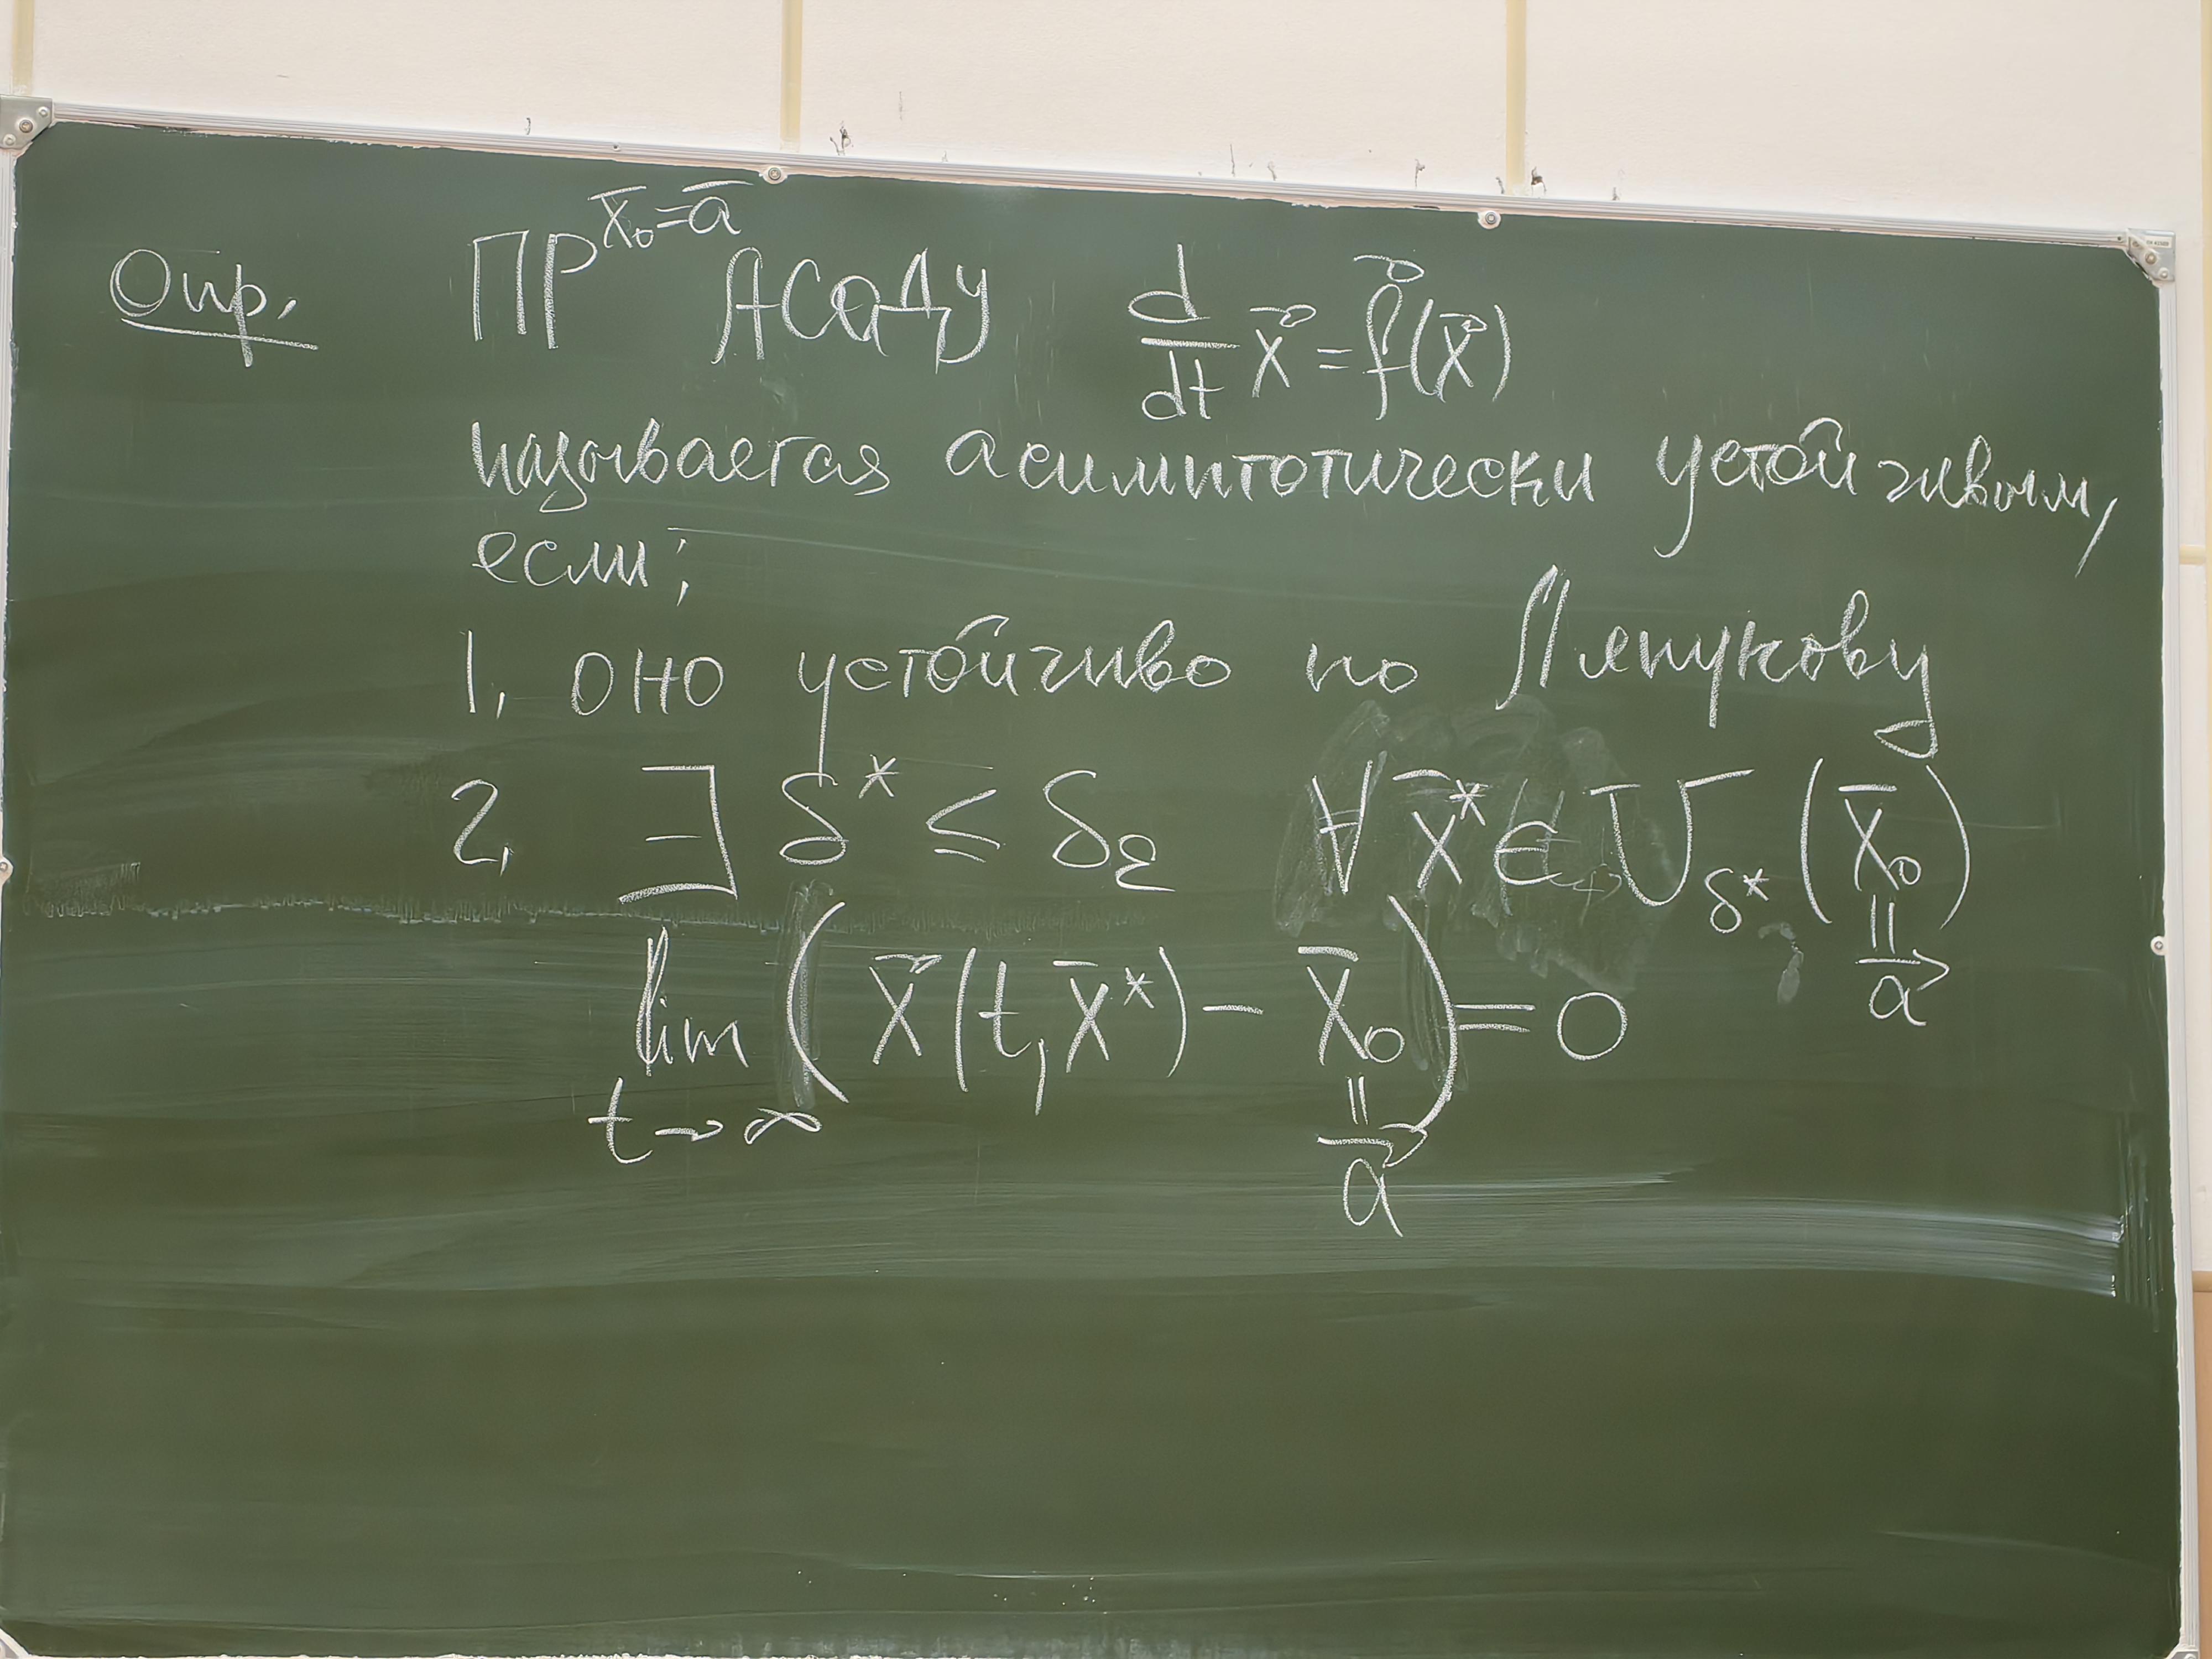 Опр. ПР x̄₀=ā АСОДУ d/dt x⃗ = f⃗(x⃗)
называется асимптотически устойчивым,
если:
1, оно устойчиво по Ляпунову
2, ∃ δ* ≤ δ_ε ∀ x̄* ∈ U_δ* (x̄₀ = a⃗)
lim t→∞ (x⃗(t, x̄*) − x̄₀ = a⃗) = 0